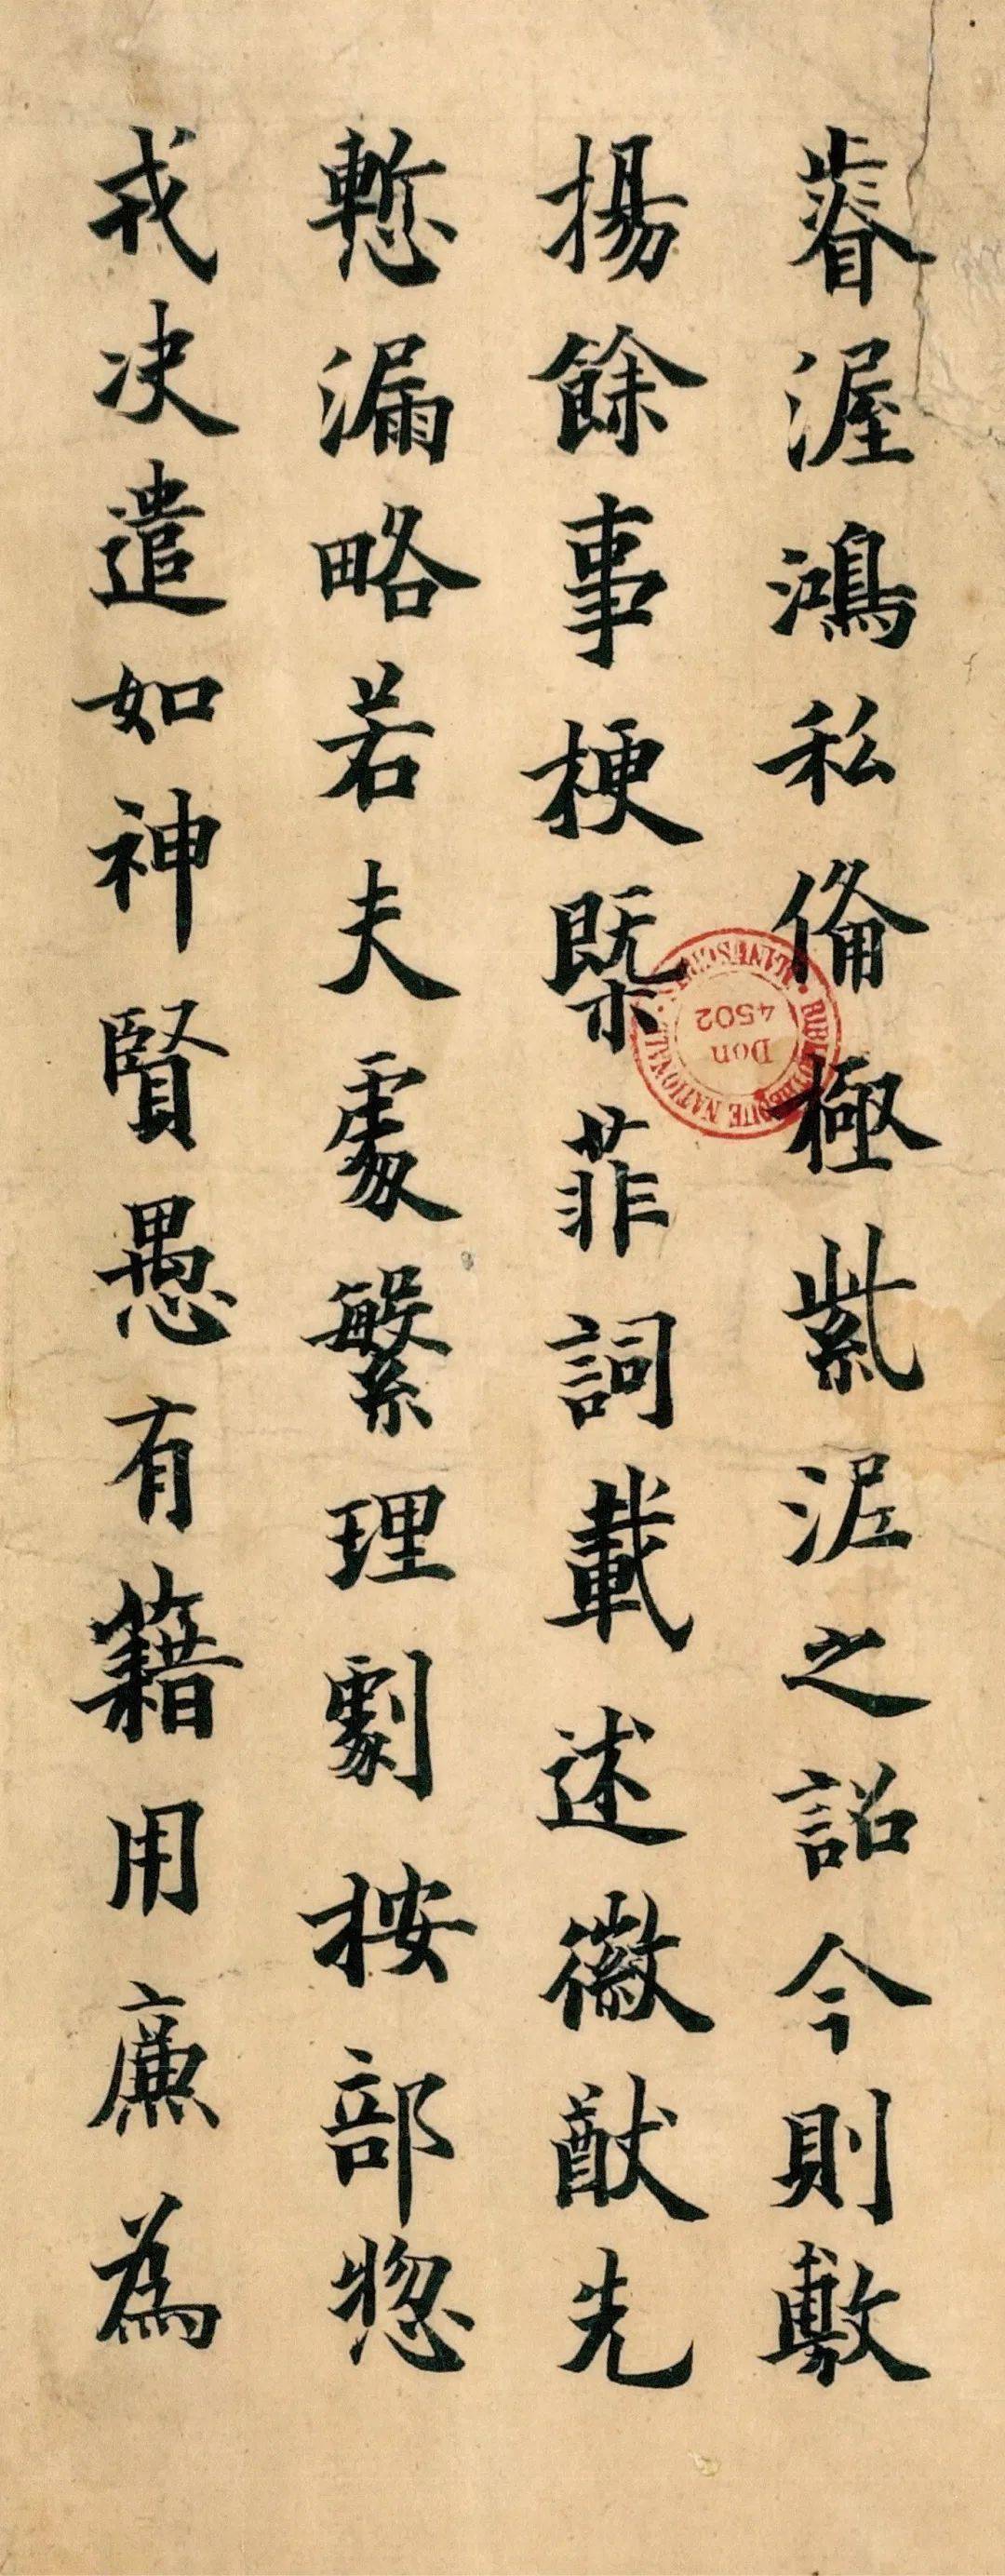 眷渥鴻私俻極紫泥之詔今則敷
揚餘事梗槩菲詞載述徽猷先
慙漏略若夫處繁理劇按部惣
戎决遣如神賢愚有籍用廉為
BIBLIOTHEQUE NATIONALE MANUSCRITS
Don
4502